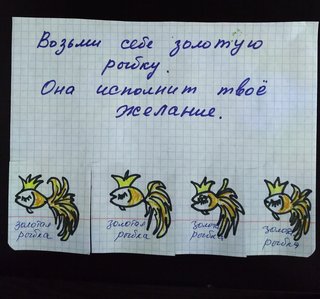 Возьми себе золотую
рыбку.
Она исполнит твоё
желание.
золотая
рыбка
золотая
рыбка
золотая
рыбка
золотая
рыбка